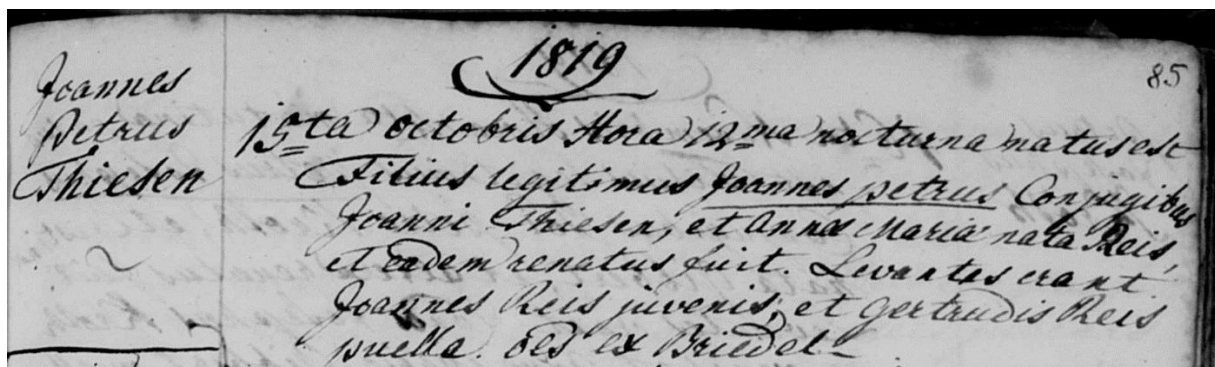 1819
85
Joannes
Petrus
Thiesen
15ta octobris Hora 12ma nocturna natus est
Filius legitimus Joannes petrus Conjugibus
Joanni Thiesen, et Annæ Maria nata Reis,
et eadem renatus fuit. Levantes erant
Joannes Reis juvenis, et Gertrudis Reis
puella. oes ex Briedel